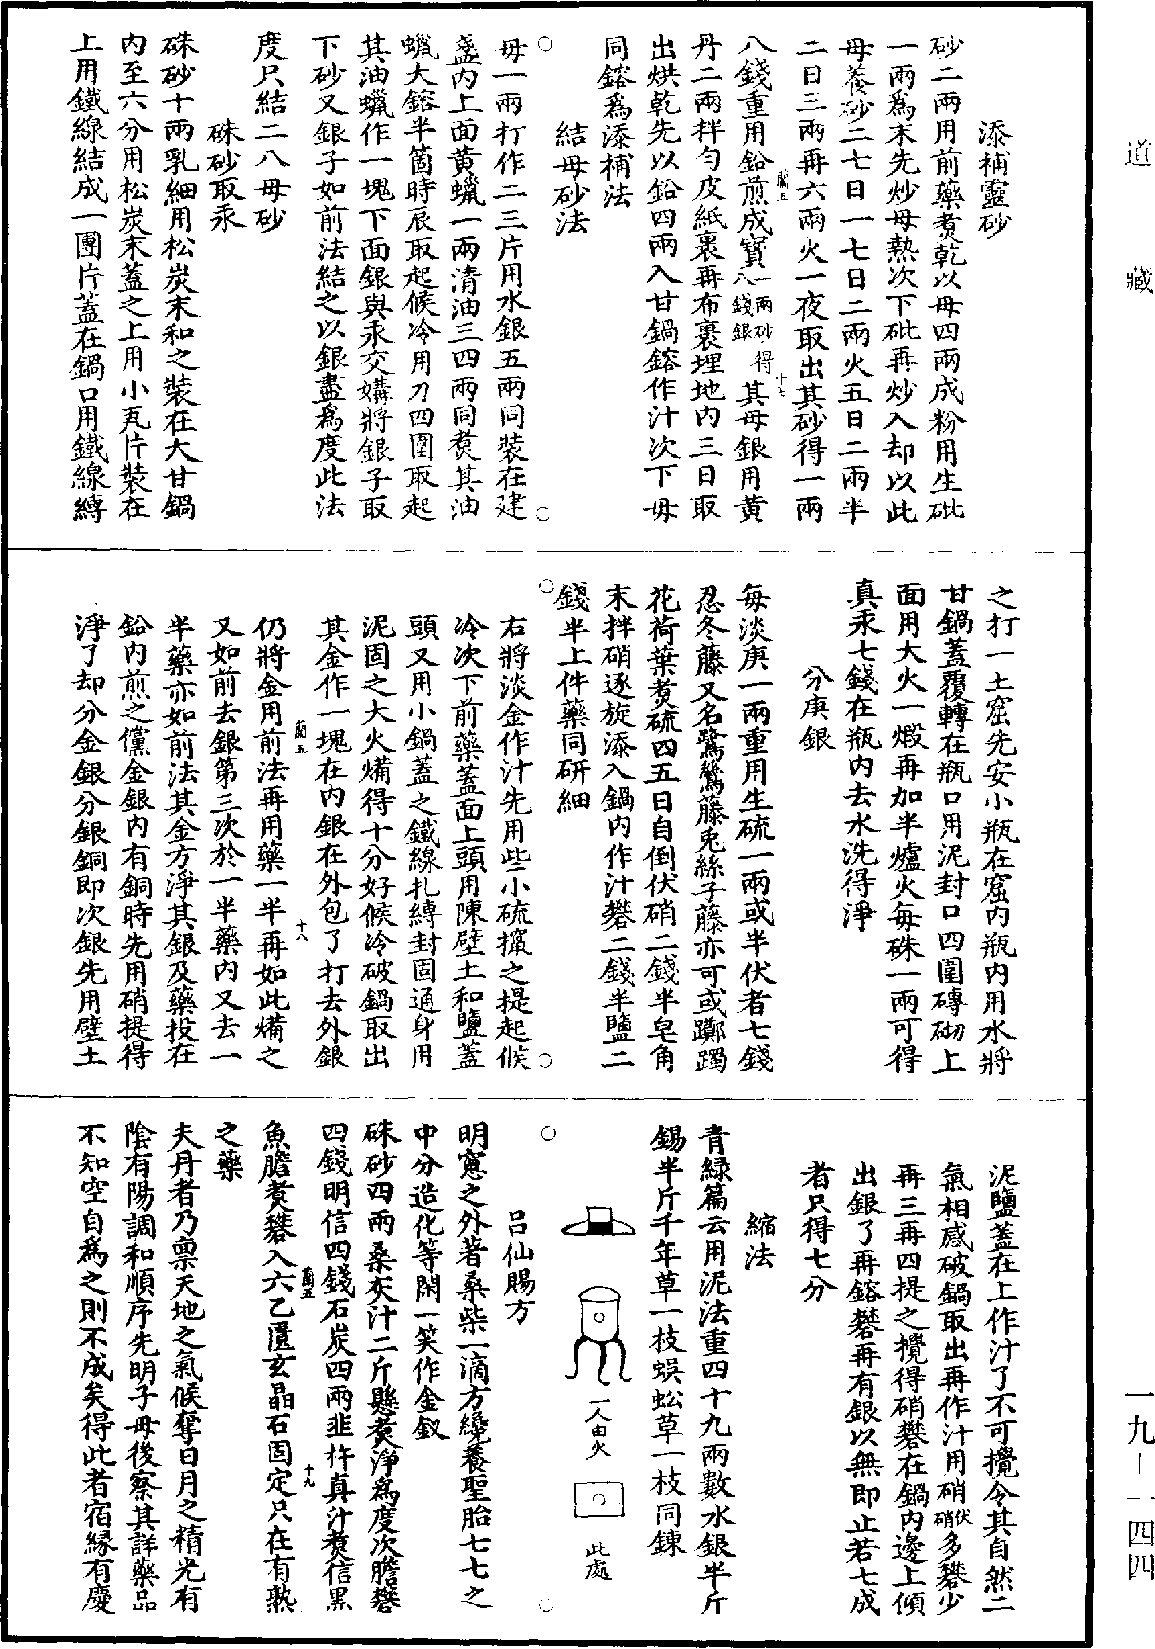 道藏
一九-一四四
添補靈砂
砂二兩用前藥煑乾以母四兩成粉用生砒
一兩爲末先炒母熱次下砒再炒入却以此
母養砂二七日一七日二兩火五日二兩半
二日三兩再六兩火一夜取出其砂得一兩
八錢重用鉛煎成寶一兩砂得八錢銀其母銀用黄
丹二兩拌勻皮紙裹再布裹埋地内三日取
出烘乾先以鉛四兩入甘鍋鎔作汁次下母
同鎔爲添補法
結母砂法
母一兩打作二三片用水銀五兩同裝在建
盞内上面黄蠟一兩清油三四兩同煑其油
蠟大鎔半箇時辰取起候冷用刀四圍取起
其油蠟作一塊下面銀與汞交媾將銀子取
下砂又銀子如前法結之以銀盡爲度此法
度只結二八母砂
硃砂取汞
硃砂十兩乳細用松炭末和之裝在大甘鍋
内至六分用松炭末蓋之上用小瓦片裝在
上用鐵線結成一團片蓋在鍋口用鐵線縳
之打一土窟先安小瓶在窟内瓶内用水將
甘鍋蓋覆轉在瓶口用泥封口四圍磚砌上
面用大火一煅再加半爐火每硃一兩可得
真汞七錢在瓶内去水洗得淨
分庚銀
每淡庚一兩重用生硫一兩或半伏者七錢
忍冬藤又名鷺鷥藤兎絲子藤亦可或躑躅
花荷葉煑硫四五日自倒伏硝二錢半皂角
末拌硝逐旋添入鍋内作汁礬二錢半鹽二
錢半上件藥同研細
右將淡金作汁先用些小硫攛之提起候
冷次下前藥蓋面上頭用陳壁土和鹽蓋
頭又用小鍋蓋之鐵線扎縳封固通身用
泥固之大火煿得十分好候冷破鍋取出
其金作一塊在内銀在外包了打去外銀
仍將金用前法再用藥一半再如此煿之
又如前去銀第三次於一半藥内又去一
半藥亦如前法其金方淨其銀及藥投在
鉛内煎之儻金銀内有銅時先用硝提得
淨了却分金銀分銀銅即次銀先用壁土
泥鹽蓋在上作汁了不可攪令其自然二
氣相感破鍋取出再作汁用硝伏硝多礬少
再三再四提之攪得硝礬在鍋内邊上傾
出銀了再鎔礬再有銀以無即止若七成
者只得七分
縮法
青緑篇云用泥法重四十九兩數水銀半斤
錫半斤千年草一枝蜈蚣草一枝同鍊
一人由火
此處
吕仙賜方
明窻之外著桑柴一滴方纔養聖胎七七之
中分造化等閑一笑作金釵
硃砂四兩桑灰汁二斤懸煑淨爲度次膽礬
四錢明信四錢石炭四兩韭杵真汁煑信黒
魚膽煑礬入六乙匱玄晶石固定只在有熟
之藥
夫丹者乃禀天地之氣候奪日月之精光有
陰有陽調和順序先明子母後察其詳藥品
不知空自爲之則不成矣得此者宿縁有慶